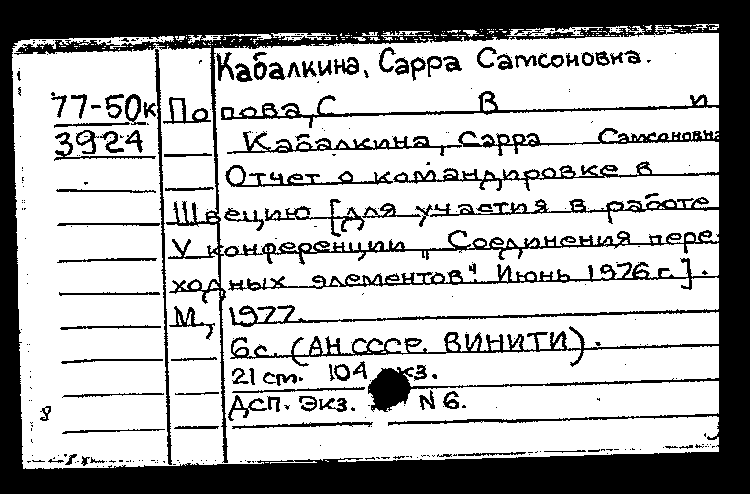 Кабалкина, Сарра Самсоновна.
77-50к Попова, С В и
3924 Кабалкина, Сарра Самсоновна
Отчет о командировке в
Швецию [для участия в работе
V конференции „Соединения пере-
ходных элементов". Июнь 1976 г.].
М., 1977.
6 с. (АН СССР. ВИНИТИ).
21 ст. 104 кз.
Дсп. Экз. N 6.
8